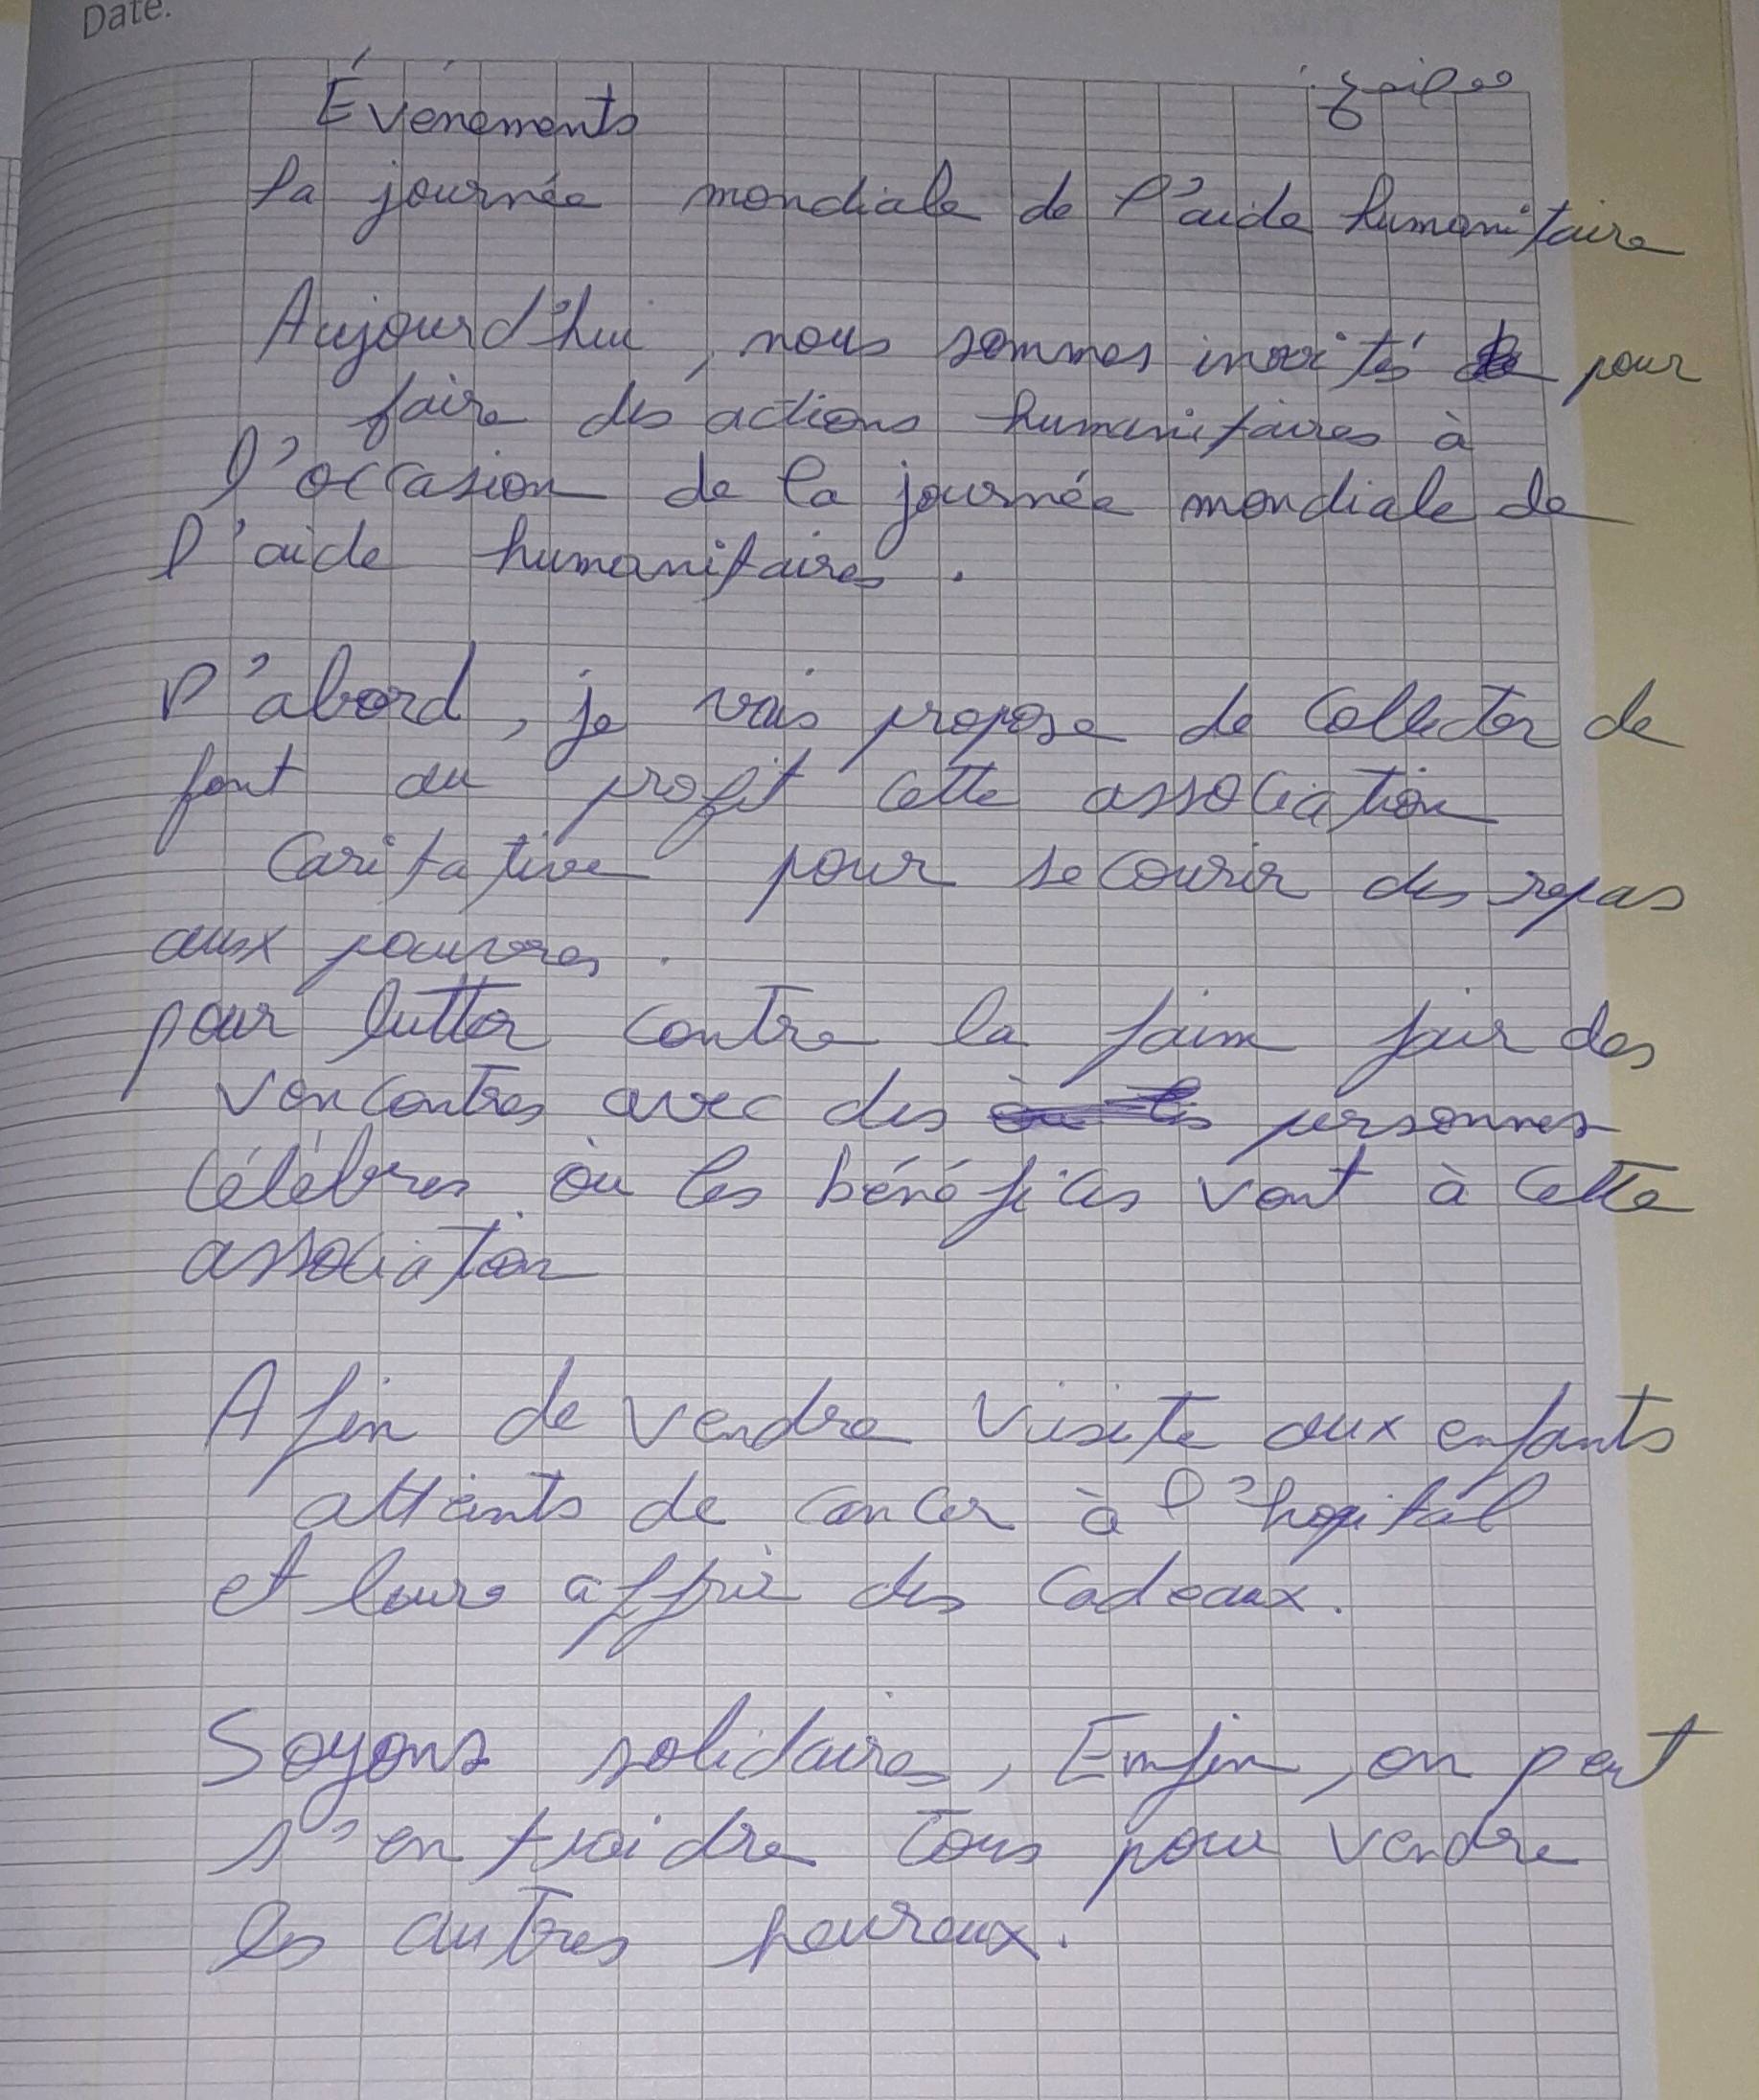 Date.
Évènements
la journée mondiale de l'aide humanitaire
Aujourd'hui, nous sommes invités pour
faire des actions humanitaires à
l'occasion de la journée mondiale de
l'aide humanitaires.
D'abord, je vais propose de collecter de
font au profit cette association
caritative pour secourir des repas
aux pauvres.
pour lutter contre la faim fair des
vencontres avec des personnes
célèbres où les bénéfices vont à cette
association
Afin de vendre visite aux enfants
atteints de cancer à l'hopital
et leurs des cadeaux.
Soyons solidaires, Enfin, on peut
s'entraidre tous pour vendre
les autres heureux.